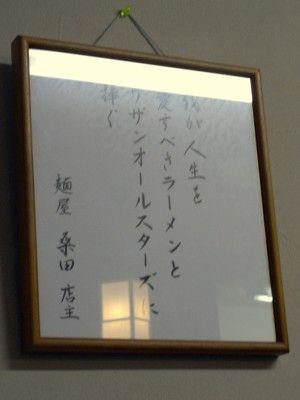 我が人生を
愛すべきラーメンと
サザンオールスターズに
捧ぐ
麺屋 桑田 店主